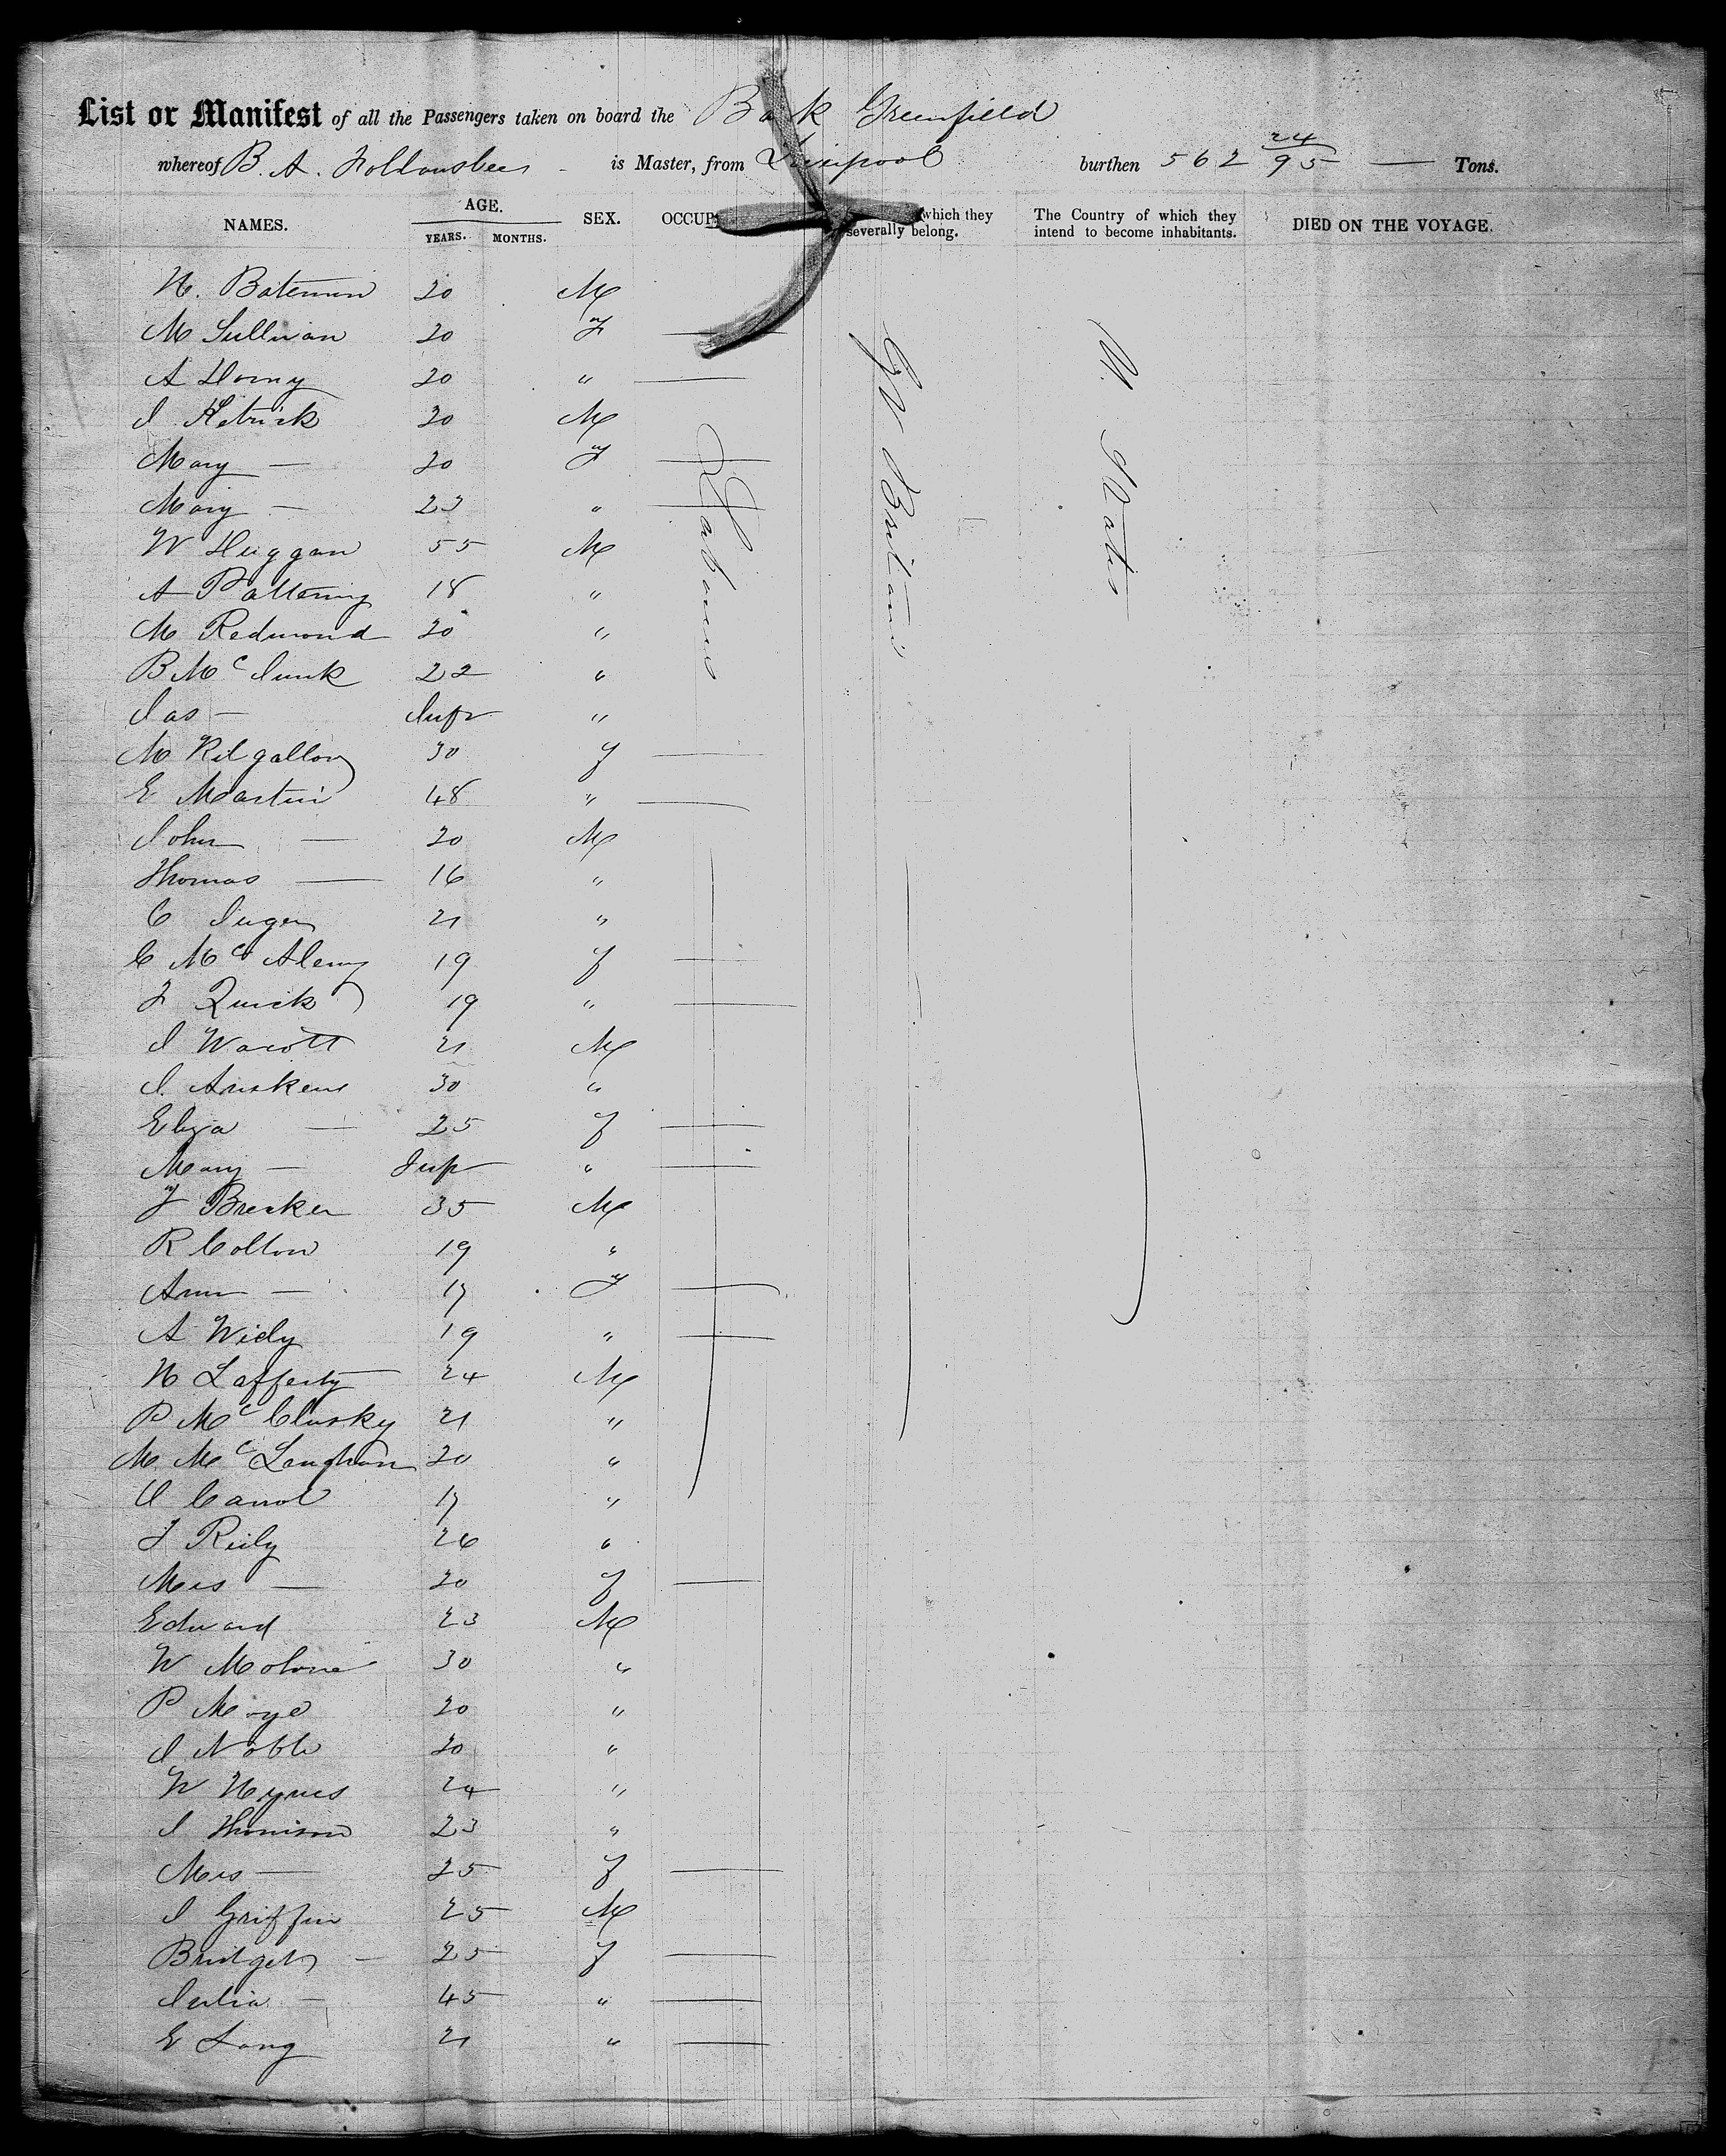 List or Manifest of all the Passengers taken on board the Bark Greenfield
whereof B. A. Follansbee is Master, from Liverpool burthen 562 24/95 — Tons.
NAMES. AGE. YEARS. MONTHS. SEX. OCCUP which they severally belong. The Country of which they intend to become inhabitants. DIED ON THE VOYAGE.
Labourers
Gt Britain
U. States
H. Bateman 20 M
M Sullivan 20 F —
A 20 " —
J Ketrick 20 M
Mary — 20 F —
Mary — 23 " —
W Huggan 55 M
A 18 "
M Redmond 20 "
B Mc 22 "
Jas — Inft "
M Kilgallon 30 F —
E Martin 48 " —
John — 20 M
Thomas — 16 "
C 21 "
C Mc Aleny 19 F —
J Quick 19 " —
J 21 M
J. 30 "
Eliza — 25 F —
Mary — Inft " —
F Breaker 35 M
R Colton 19 "
Ann — 17 F —
A Widy 19 " —
H Lafferty 24 M
P Mc Clusky 21 "
M. Mc 20 "
C Carrol 17 "
J Reily 26 "
Mrs — 20 F —
Edward 23 M
W Molone 30 "
P Moye 20 "
J Noble 20 "
W Hynes 24 "
J 23 "
Mrs — 25 F —
J Griffin 25 M
Bridget — 25 F —
Julia — 45 " —
E Long 21 " —